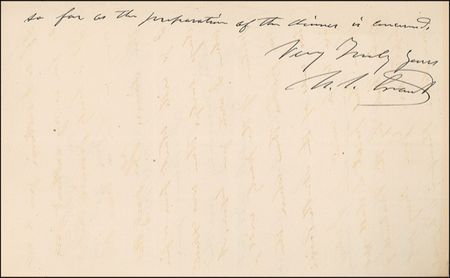 so far as the preparation of the dinner is concerned.
Very Truly Yours
U. S. Grant